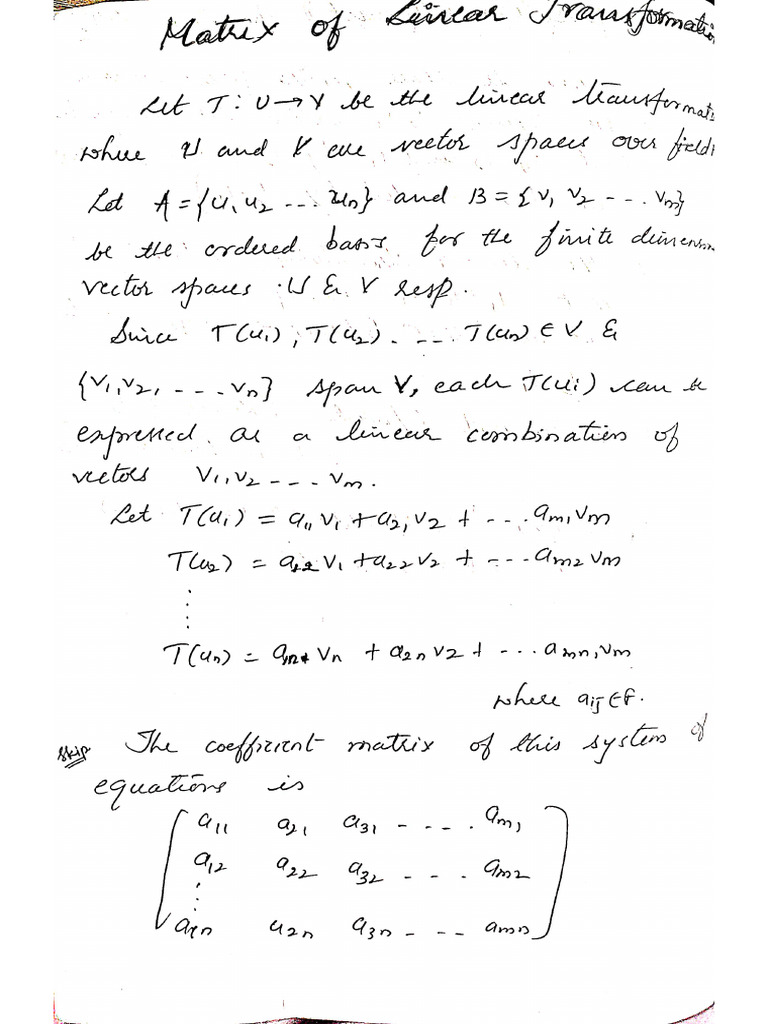 Matrix of Linear Transformation
Let T : U → V be the linear transformat
where U and V are vector spaces over field
Let A = {u, u2 --- un} and B = {v, v2 --- vm}
be the ordered basis for the finite dimension
vector spaces U & V resp.
Since T(u1), T(u2) . --- T(un) ∈ V &
{v1, v2, ---- vn} span V, each T(ui) can be
expressed as a linear combination of
vectors v1, v2 ---- vm.
Let T(u1) = a11 v1 + a21 v2 + --- am1 vm
T(u2) = a12 v1 + a22 v2 + --- am2 vm
⋮
T(un) = a1n vn + a2n v2 + --- amn, vm
where aij ∈ F.
skip The coefficient matrix of this system of
equations is
a11 a21 a31 ---- am1
a12 a22 a32 --- am2
⋮
a1n a2n a3n --- amn